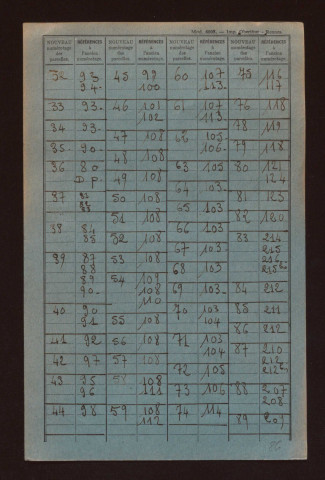 NOUVEAU numérotage des parcelles. RÉFÉRENCES à l'ancien numérotage. NOUVEAU numérotage des parcelles. RÉFÉRENCES à l'ancien numérotage. NOUVEAU numérotage des parcelles. RÉFÉRENCES à l'ancien numérotage. NOUVEAU numérotage des parcelles. RÉFÉRENCES à l'ancien numérotage.
32 93
94
33 93
34 93
35 90
36 80
D P.
37
38 84
85
39 87
88
89
90
40 90
91
41 92
42 97
43 95
96
44 98
45 99
100
46 101
102
47 108
48 108
49 108
50 108
51 108
52 108
53 108
54 109
108
110
55 108
56 108
57 108
58 108
111
59 108
112
60 107
113
61 107
113
62 105
106
63 105
64 103
65 103
66 103
67 103
68 103
69 103
70 103
104
71 103
104
72 105
73 106
74 114
75 116
117
76 118
78 119
79 118
80 121
124
81 123
82 120
83 214
215
216
215 bis
84 212
85 211
86 212
87 210
212
212 bis
88 207
208
89 207